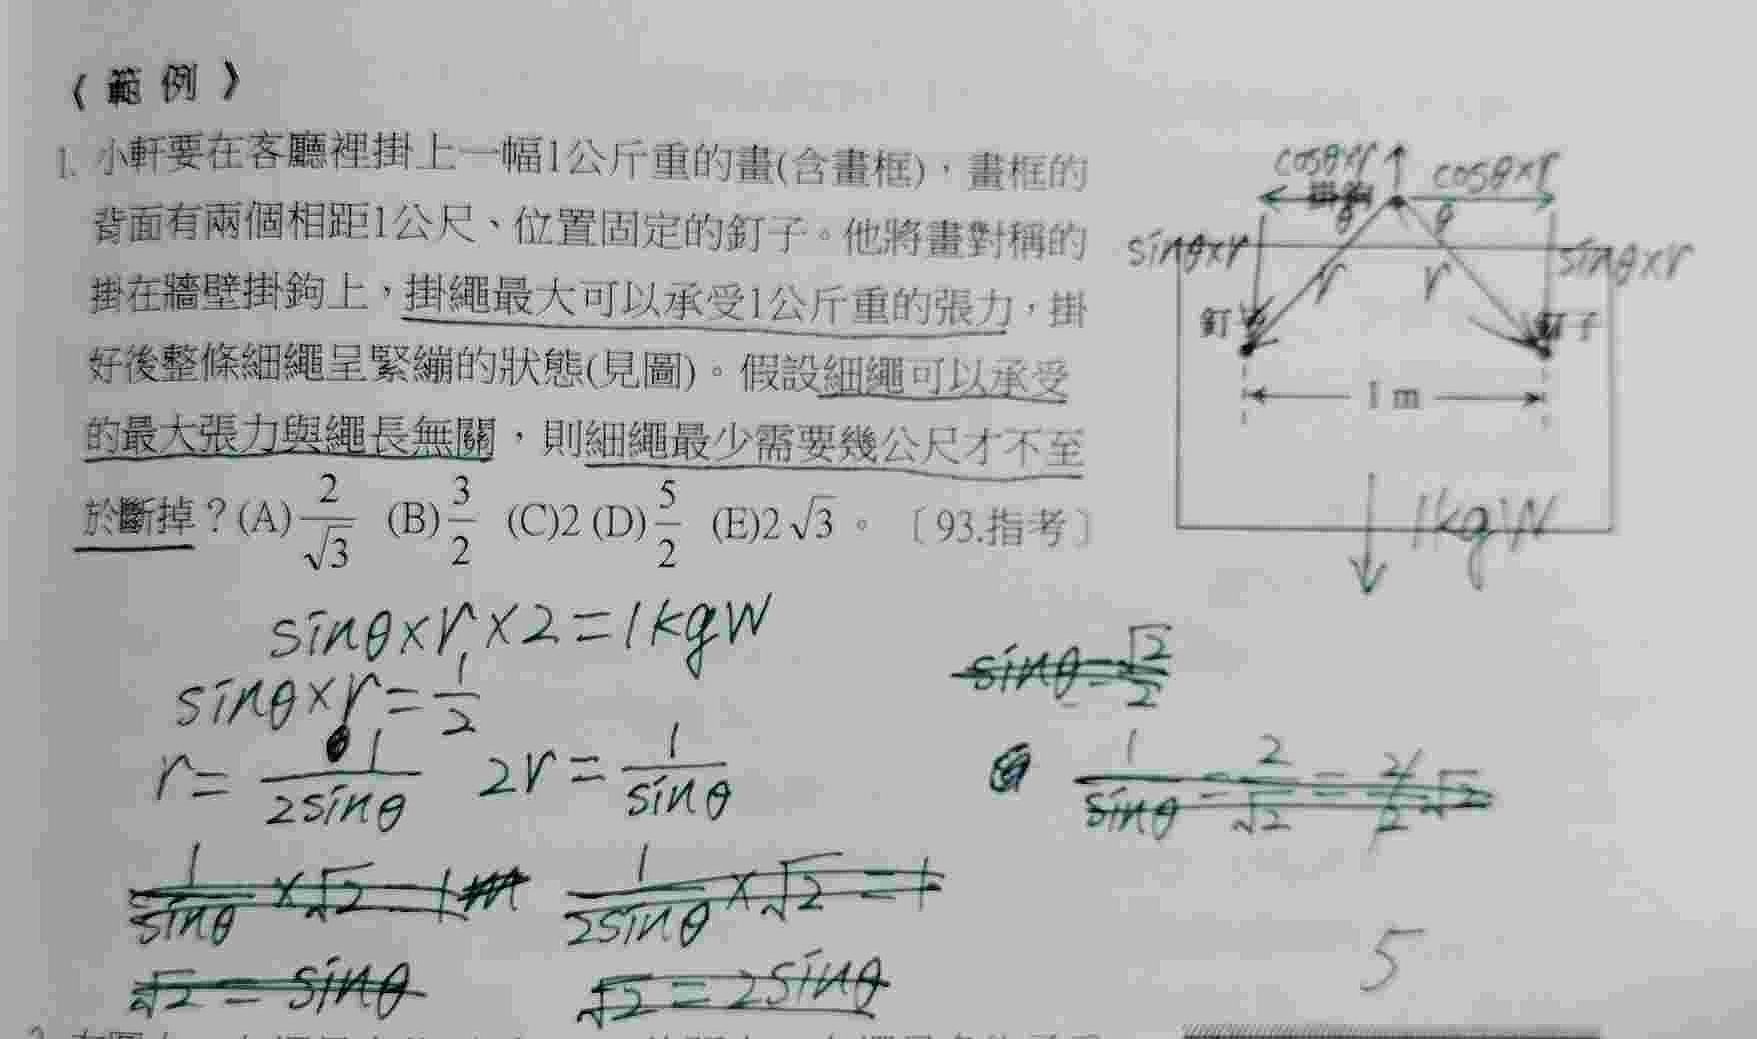 《範例》
1. 小軒要在客廳裡掛上一幅1公斤重的畫(含畫框)，畫框的
背面有兩個相距1公尺、位置固定的釘子。他將畫對稱的
掛在牆壁掛鉤上，掛繩最大可以承受1公斤重的張力，掛
好後整條細繩呈緊繃的狀態(見圖)。假設細繩可以承受
的最大張力與繩長無關，則細繩最少需要幾公尺才不至
於斷掉？(A) 2/√3 (B) 3/2 (C)2 (D) 5/2 (E)2√3。〔93.指考〕
cosθ×r cosθ×r
掛鉤
θ θ
sinθ×r sinθ×r
r r
釘子 釘子
1 m
1kgW
sinθ×r×2=1kgW
sinθ×r=1/2
r=1/2sinθ 2r=1/sinθ
1/sinθ×√2=1m 1/2sinθ×√2=1
√2=sinθ √2=2sinθ
sinθ=√2/2
1/sinθ=2/√2=2/2√2
5